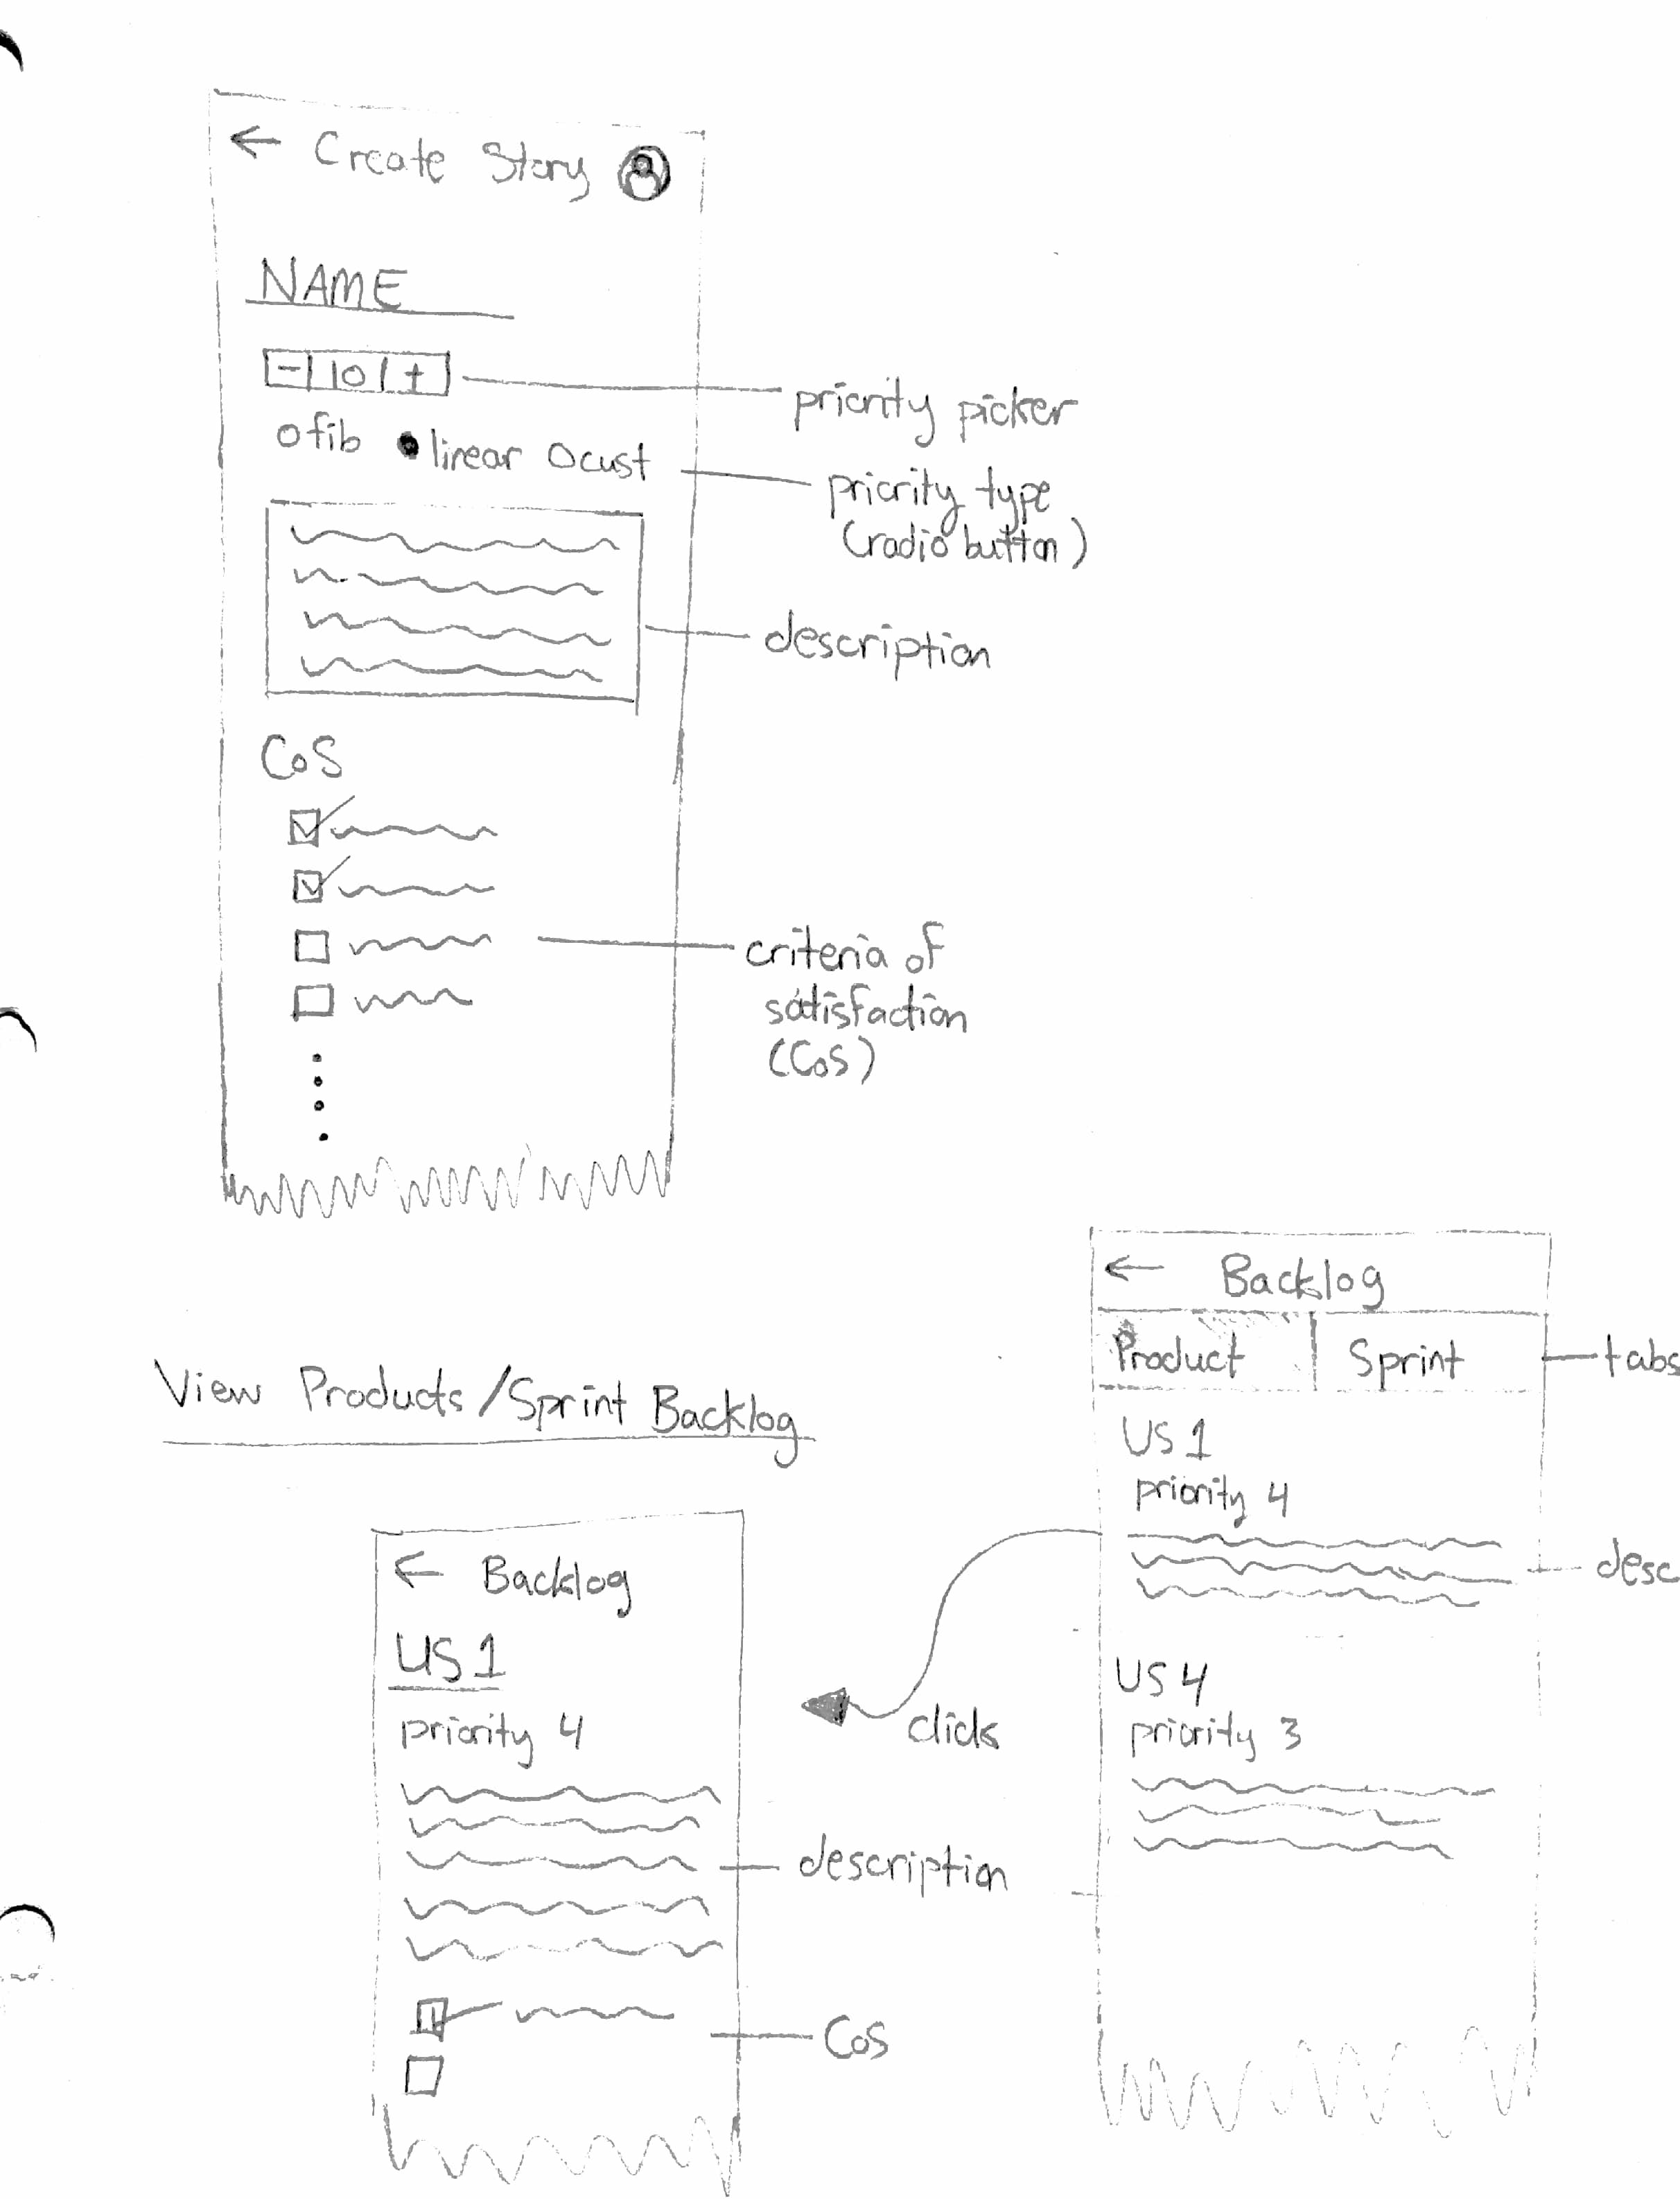 ← Create Story
NAME
- 10 +
priority picker
fib linear cust
priority type
(radio button)
description
CoS
criteria of
satisfaction
(CoS)
View Products/Sprint Backlog
← Backlog
Product Sprint
tabs
US 1
priority 4
desc
US 4
priority 3
clicks
← Backlog
US 1
priority 4
description
CoS